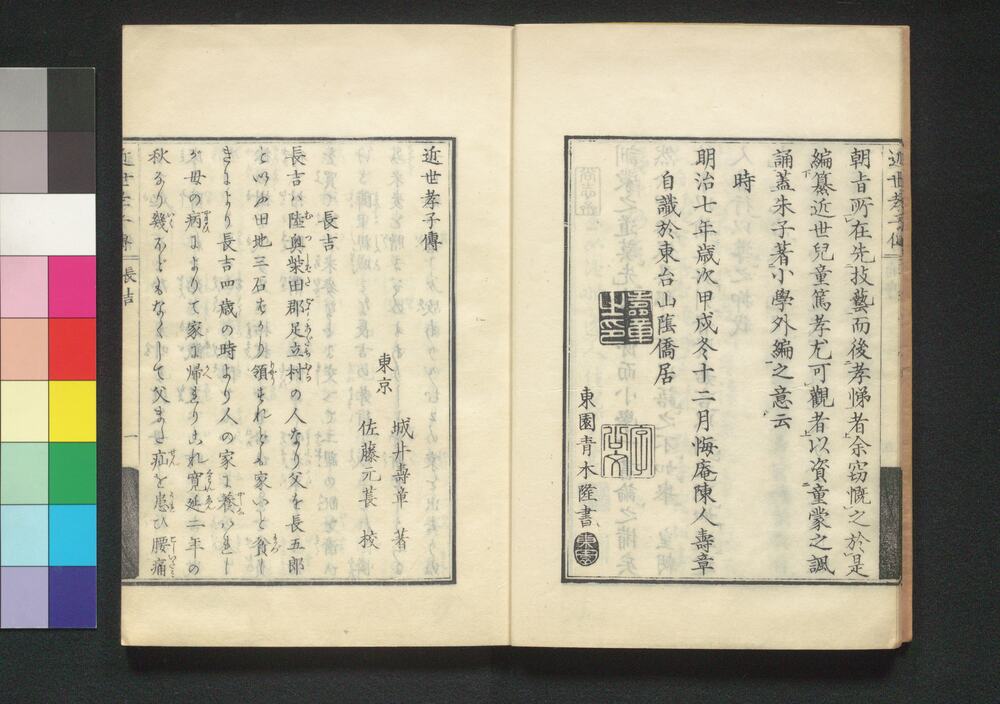 朝旨所在先技藝而後孝悌者余窃慨之於是
編纂近世兒童篤孝尤可觀者以資童蒙之諷
誦蓋朱子著小學外編之意云
時
明治七年歳次甲戌冬十二月悔庵陳人壽章
自識於東台山蔭僑居
東園青木隆書
近世孝子傳
東京
城井壽章 著
佐藤元萇 校
長吉
長吉は陸奥柴田郡足立村の人なり父を長五郎
といふ田地三石あまり領すれども家いと貧し
きにより長吉四歳の時より人の家に養はれし
が母の病によりて家に帰りこれ寛延二年の
秋なり幾ほどもなくして父また疝を患ひ腰痛
近世孝子傳
長吉
一